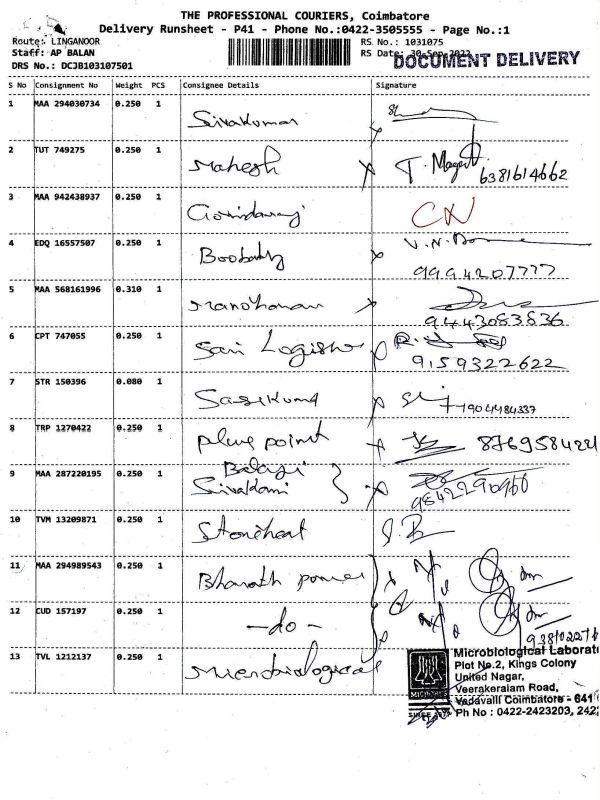 THE PROFESSIONAL COURIERS, Coimbatore
Delivery Runsheet - P41 - Phone No.:0422-3505555 - Page No.:1
Route: LINGANOOR
RS No.: 1031075
Staff: AP BALAN
RS Date: 30-Sep-2022
DOCUMENT DELIVERY
DRS No.: DCJB103107501
S No Consignment No Weight PCS Consignee Details Signature
1 MAA 294030734 0.250 1 Sivakumar
2 TUT 749275 0.250 1 Mahesh
6381614662
3 MAA 942438937 0.250 1 Govindaraj CN
4 EDQ 16557507 0.250 1
9994207777
5 MAA 568161996 0.310 1 Manoharan
9443083836
6 CPT 747055 0.250 1 Sari
9159322622
7 STR 150396 0.080 1 Sasikumar
7904484337
8 TRP 1270422 0.250 1 point
Balaji
9 MAA 287220195 0.250 1 Sivakami
9842290960
10 TVM 13209871 0.250 1
11 MAA 294989543 0.250 1 Bharath power
12 CUD 157197 0.250 1 -do-
13 TVL 1212137 0.250 1 Microbiological
MICROBES
Microbiological Laborato
Plot No.2, Kings Colony
United Nagar,
Veerakeralam Road,
Vadavalli Coimbatore - 641
Ph No : 0422-2423203, 242